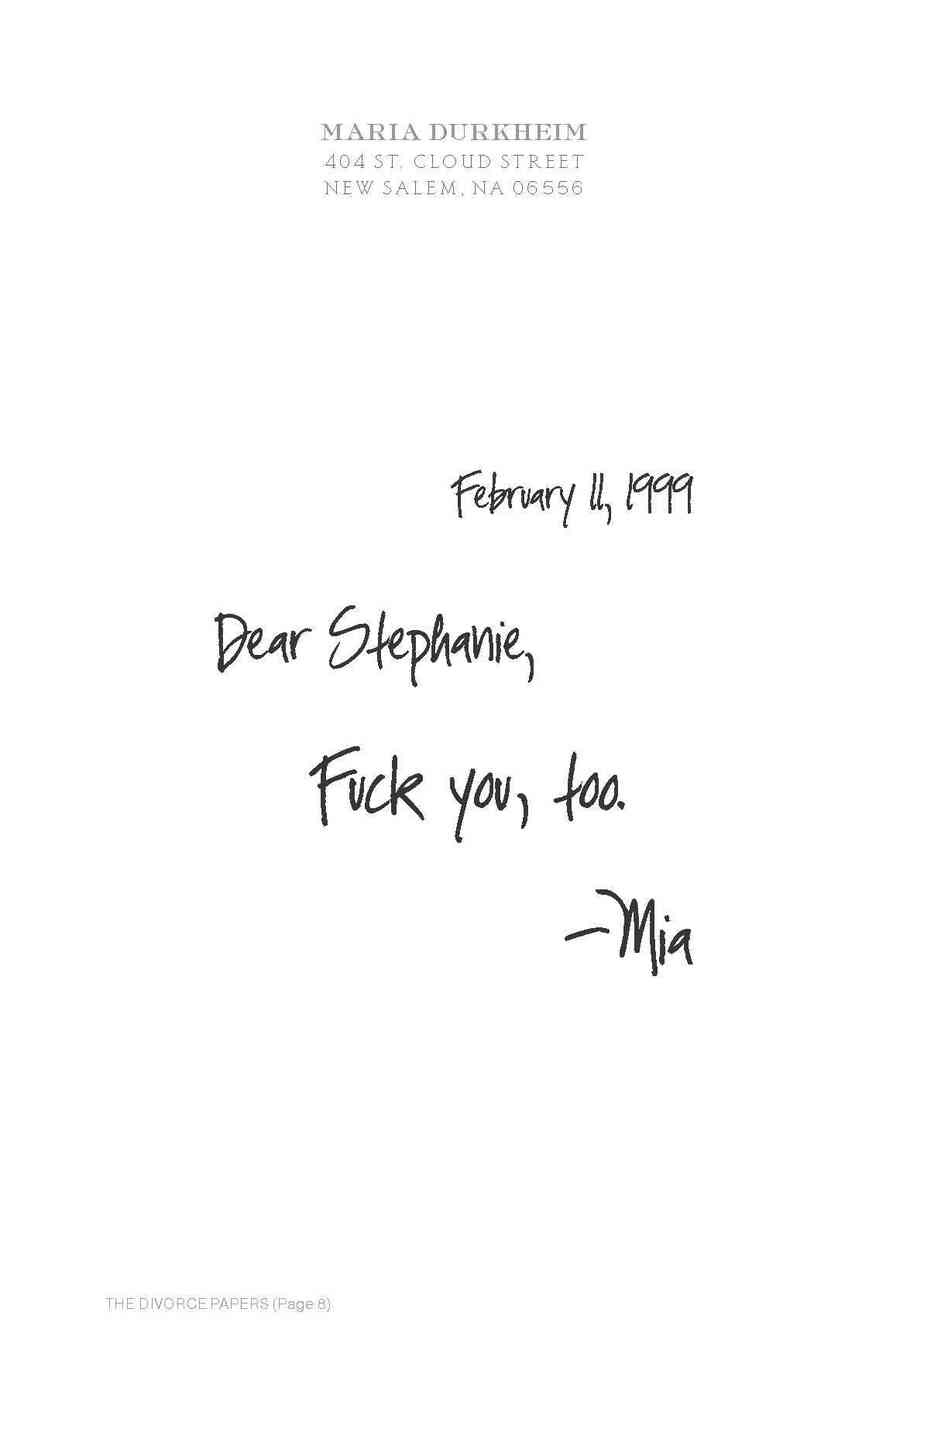 MARIA DURKHEIM
404 ST. CLOUD STREET
NEW SALEM, NA 06556
February 11, 1999
Dear Stephanie,
Fuck you, too.
—Mia
THE DIVORCE PAPERS (Page 8)